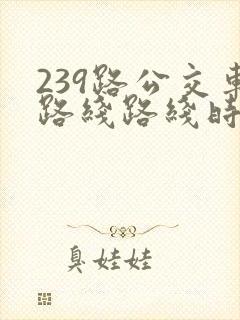 239路公交车
路线路线时
臭娃娃